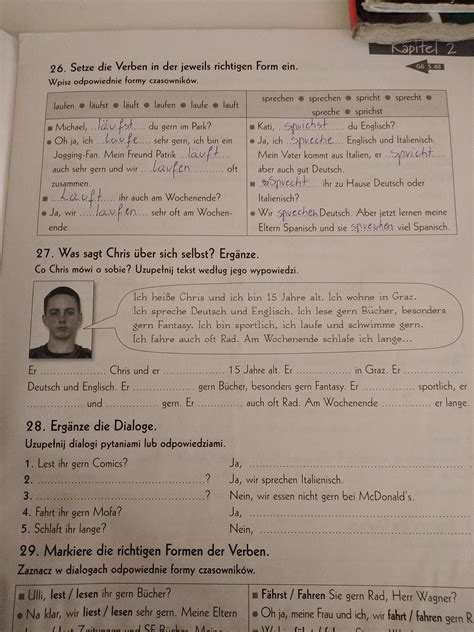 Kapitel 2
GB S. 48
26. Setze die Verben in der jeweils richtigen Form ein.
Wpisz odpowiednie formy czasowników.
laufen ● läufst ● läuft ● laufen ● laufe ● lauft
■ Michael, läufst du gern im Park?
● Oh ja, ich laufe sehr gern, ich bin ein
Jogging-Fan. Mein Freund Patrik läuft
auch sehr gern und wir laufen oft
zusammen.
■ Lauft ihr auch am Wochenende?
● Ja, wir laufen sehr oft am Wochen-
ende.
sprechen ● sprechen ● spricht ● sprecht ●
spreche ● sprichst
■ Kati, sprichst du Englisch?
● Ja, ich spreche Englisch und Italienisch.
Mein Vater kommt aus Italien, er spricht
aber auch gut Deutsch.
■ Sprecht ihr zu Hause Deutsch oder
Italienisch?
● Wir sprechen Deutsch. Aber jetzt lernen meine
Eltern Spanisch und sie sprechen viel Spanisch.
27. Was sagt Chris über sich selbst? Ergänze.
Co Chris mówi o sobie? Uzupełnij tekst według jego wypowiedzi.
Ich heiße Chris und ich bin 15 Jahre alt. Ich wohne in Graz.
Ich spreche Deutsch und Englisch. Ich lese gern Bücher, besonders
gern Fantasy. Ich bin sportlich, ich laufe und schwimme gern.
Ich fahre auch oft Rad. Am Wochenende schlafe ich lange...
Er .................... Chris und er .................... 15 Jahre alt. Er .................... in Graz. Er ....................
Deutsch und Englisch. Er .................... gern Bücher, besonders gern Fantasy. Er .................... sportlich, er
.................... und .................... gern. Er .................... auch oft Rad. Am Wochenende .................... er lange.
28. Ergänze die Dialoge.
Uzupełnij dialogi pytaniami lub odpowiedziami.
1. Lest ihr gern Comics? Ja, ....................
2. .................... ? Ja, wir sprechen Italienisch.
3. .................... ? Nein, wir essen nicht gern bei McDonald's.
4. Fahrt ihr gern Mofa? Ja, ....................
5. Schlaft ihr lange? Nein, ....................
29. Markiere die richtigen Formen der Verben.
Zaznacz w dialogach odpowiednie formy czasowników.
■ Ulli, lest / lesen ihr gern Bücher?
● Na klar, wir liest / lesen sehr gern. Meine Eltern
■ Fährst / Fahren Sie gern Rad, Herr Wagner?
● Oh ja, meine Frau und ich, wir fahrt / fahren gern R